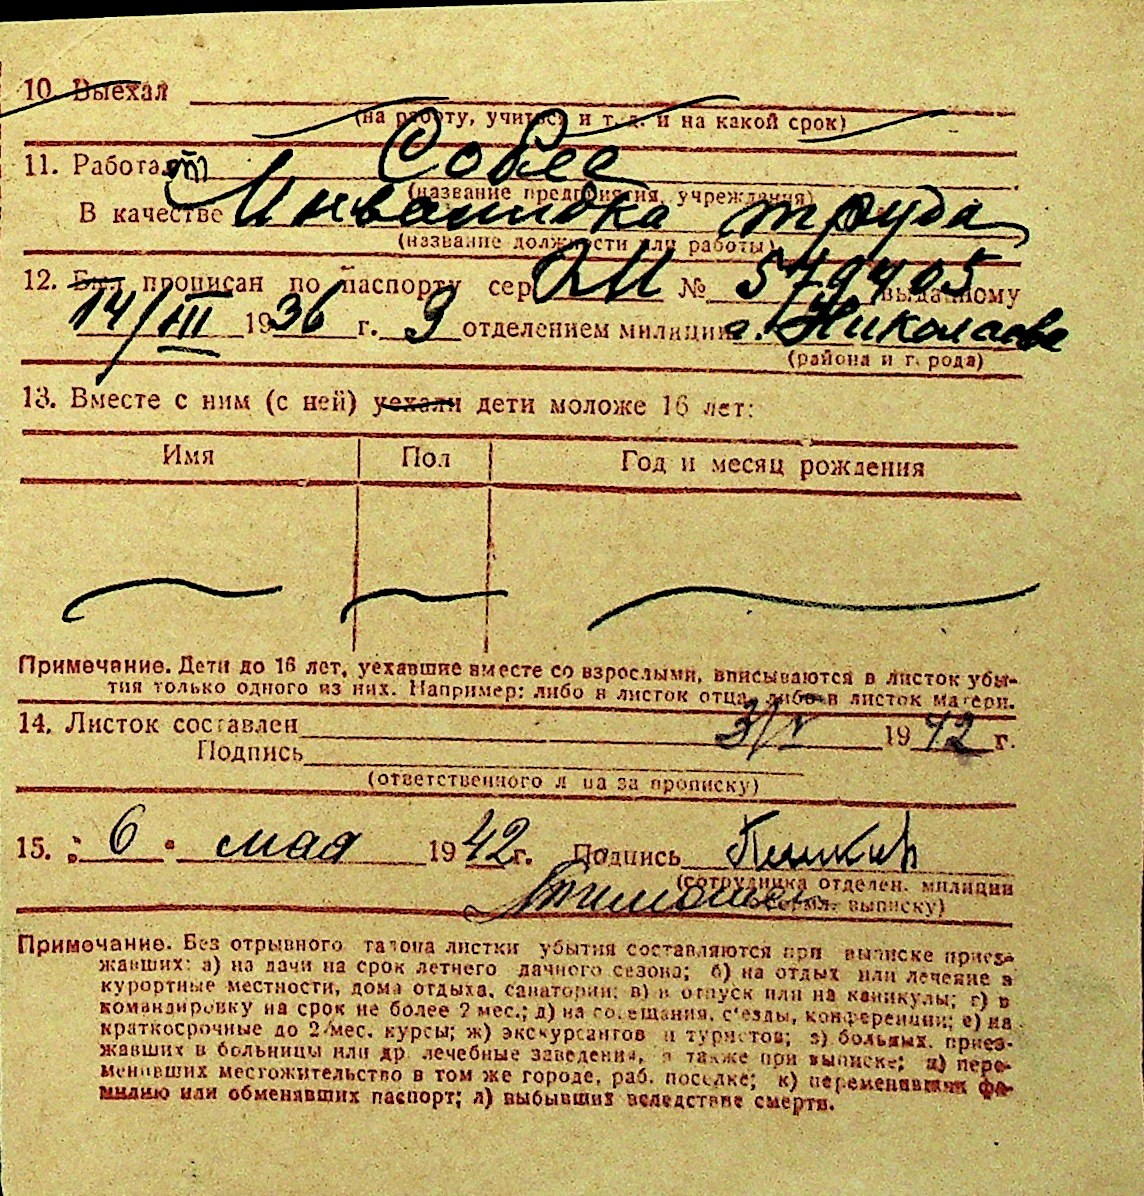 10. Выехал
(на работу, учиться и т. д. и на какой срок)
11. Работает Собес
(название предприятия, учреждения)
В качестве Инвалидка труда
(название должности или работы)
12. Был прописан по паспорту сер. № 579405 выданному
14/III 1936 г. 9 отделением милиции г. Николаева
(района и г. рода)
13. Вместе с ним (с ней) уехали дети моложе 16 лет:
Имя Пол Год и месяц рождения
Примечание. Дети до 16 лет, уехавшие вместе со взрослыми, вписываются в листок убы-
тия только одного из них. Например: либо в листок отца, либо в листок матери.
14. Листок составлен 3/V 1942 г.
Подпись
(ответственного л ца за прописку)
15. „ 6 " мая 1942 г. Подпись
(сотрудника отделен. милиции
выписку)
Примечание. Без отрывного талона листки убытия составляются при выписке приез-
жавших: а) на дачи на срок летнего дачного сезона; б) на отдых или лечение в
курортные местности, дома отдыха, санатории; в) в отпуск или на каникулы; г) в
командировку на срок не более 2 мес.; д) на совещания, с'езды, конференции; е) на
краткосрочные до 2 мес. курсы; ж) экскурсантов и туристов; з) больных, приез-
жавших в больницы или др. лечебные заведения, а также при выписке; и) пере-
менивших местожительство в том же городе, раб. поселке; к) переменивших фа-
милию или обменявших паспорт; л) выбывших вследствие смерти.